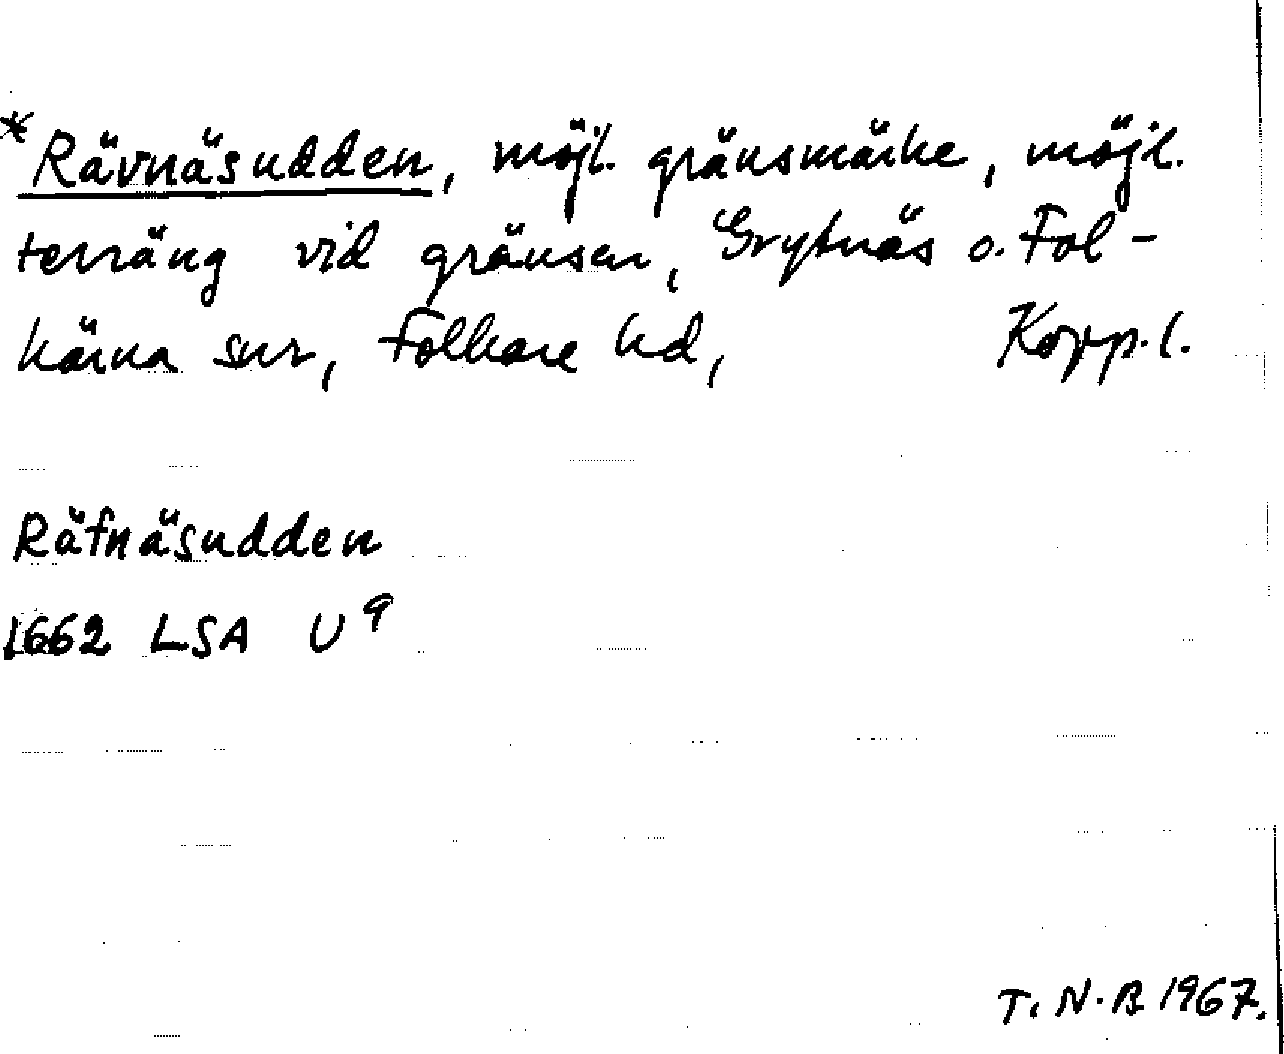 *Rävnäsudden, möjl. gränsmärke, möjl.
terräng vid gränsen, Grytnäs o. Fol-
kärna snr, Folkare hd, Kopp.l.
Räfnäsudden
1662 LSA U 9
T.N.B 1967.